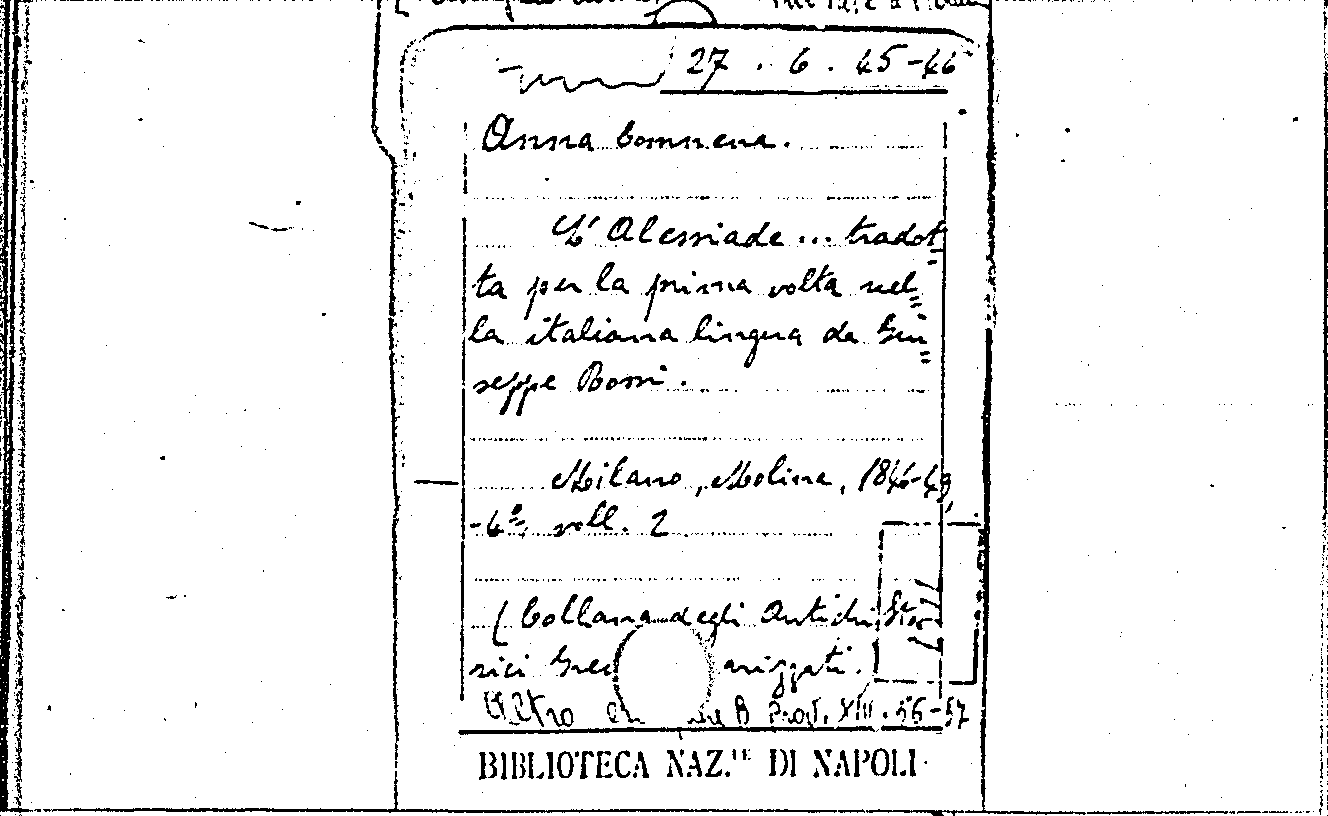 27.6.45-46
Anna Comnena.
L'Alessiade... tradot=
ta per la prima volta nel=
la italiana lingua da Giu=
seppe Rossi.
Milano, Molina, 1846-49,
-4º, voll. 2
(Collana degli Antichi Sto=
rici Grec anizzati.
Altro B Prov. XIII. 56-57
BIBLIOTECA NAZ.LE DI NAPOLI